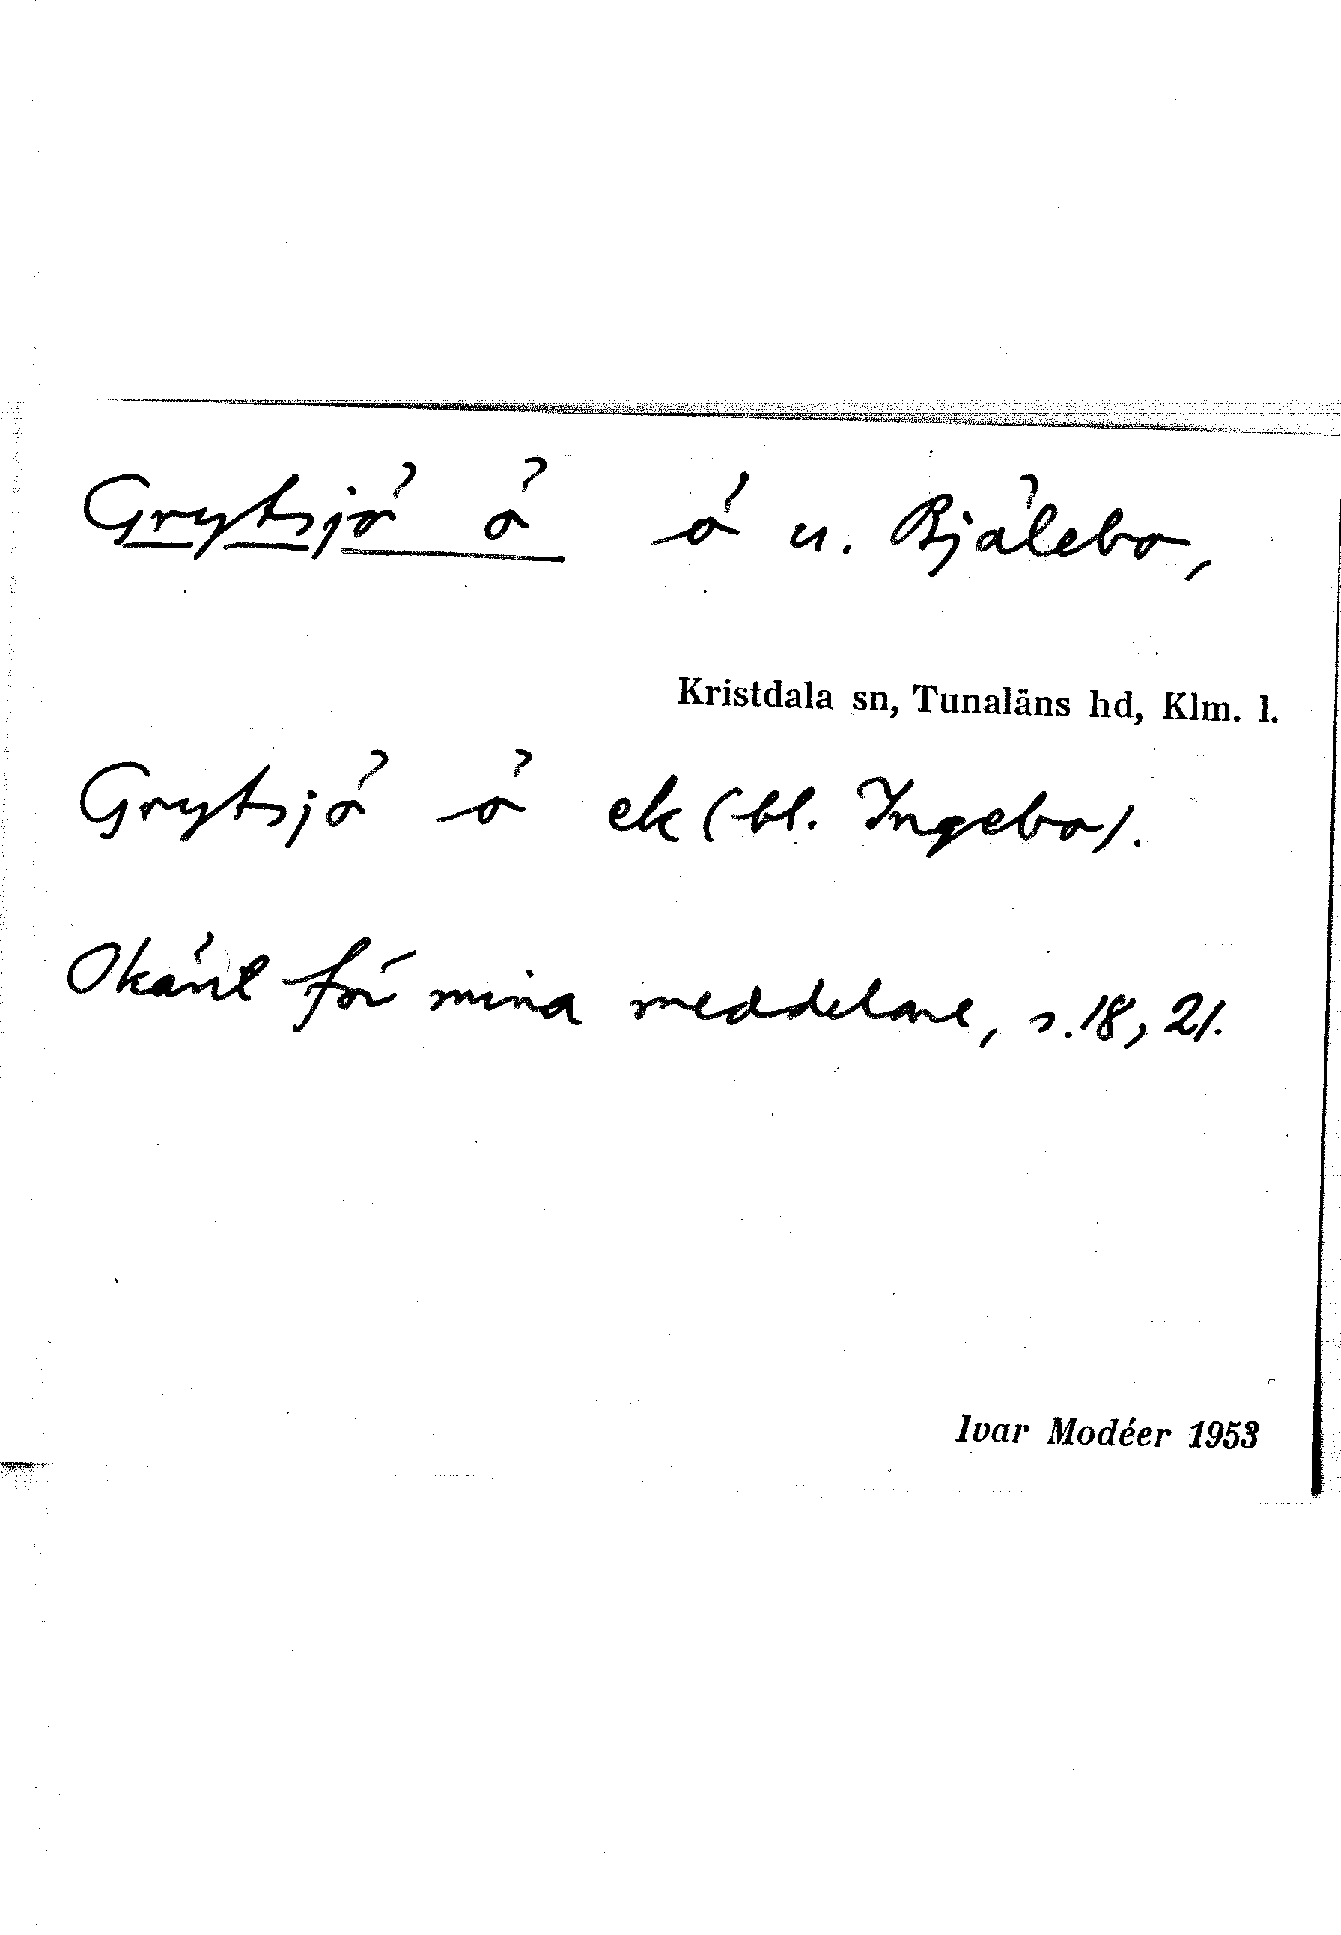 Grytsjö ö ö u. Bjälebo,
Kristdala sn, Tunaläns hd, Klm. l.
Grytsjö ö ek (bl. Ingebo).
Okänt för mina meddelare, s. 18, 21.
Ivar Modéer 1953